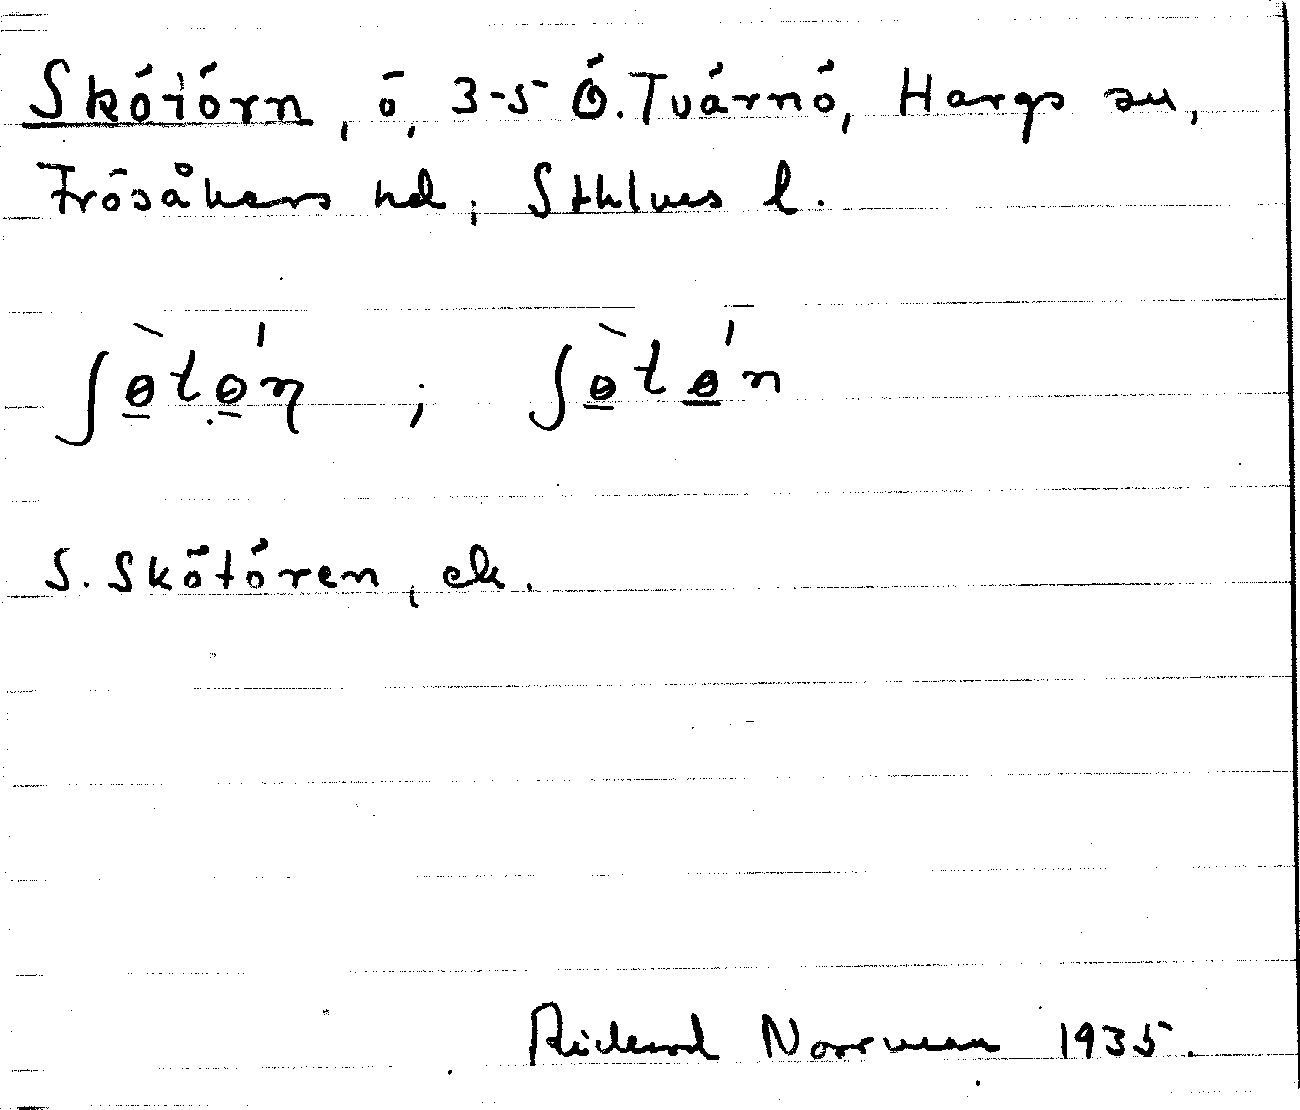 Skötörn, ö, 3-5 Ö. Tvärnö, Hargs sn,
Frösåkers hd, Sthlms l.
ʃɵ̱̀tɵ̱́n ; ʃɵ̱̀tɵ̱́n
S. Skötören, ek.
Rickard Norrman 1935.